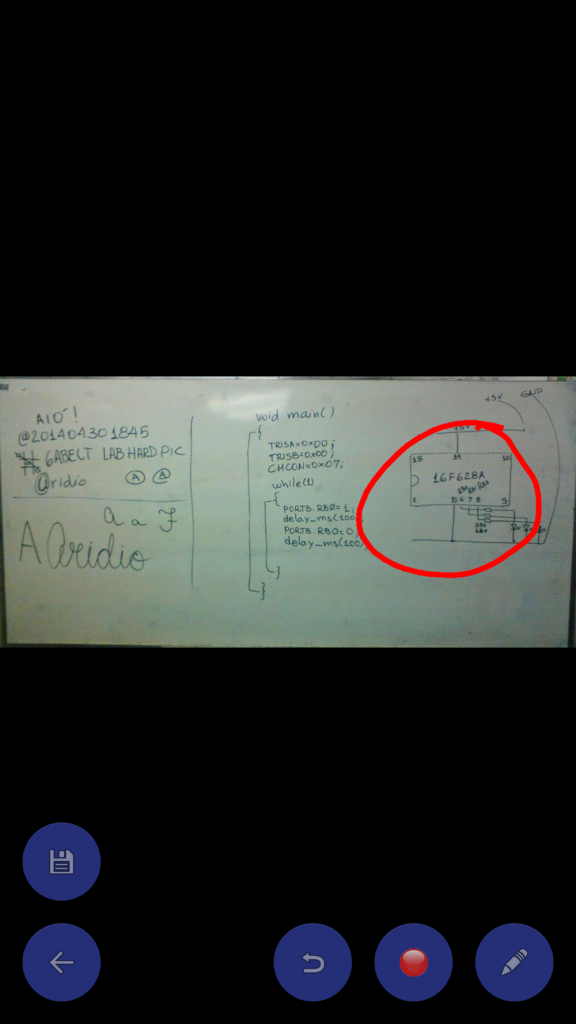 A10-!
@201404301845
GABELT LAB HARD PIC
@ridio A A
a a J
A @ridio
void main()
{
TRISA=0x00;
TRISB=0x00;
CMCON=0x07;
while(1)
{
PORTB.RB0=1;
delay_ms(100
PORTB.RB0=0;
delay_ms(100
}
}
+5V GND
+5V
18 14 10
16F628A
RB0 RB1 RB2
1 5 6 7 8 9